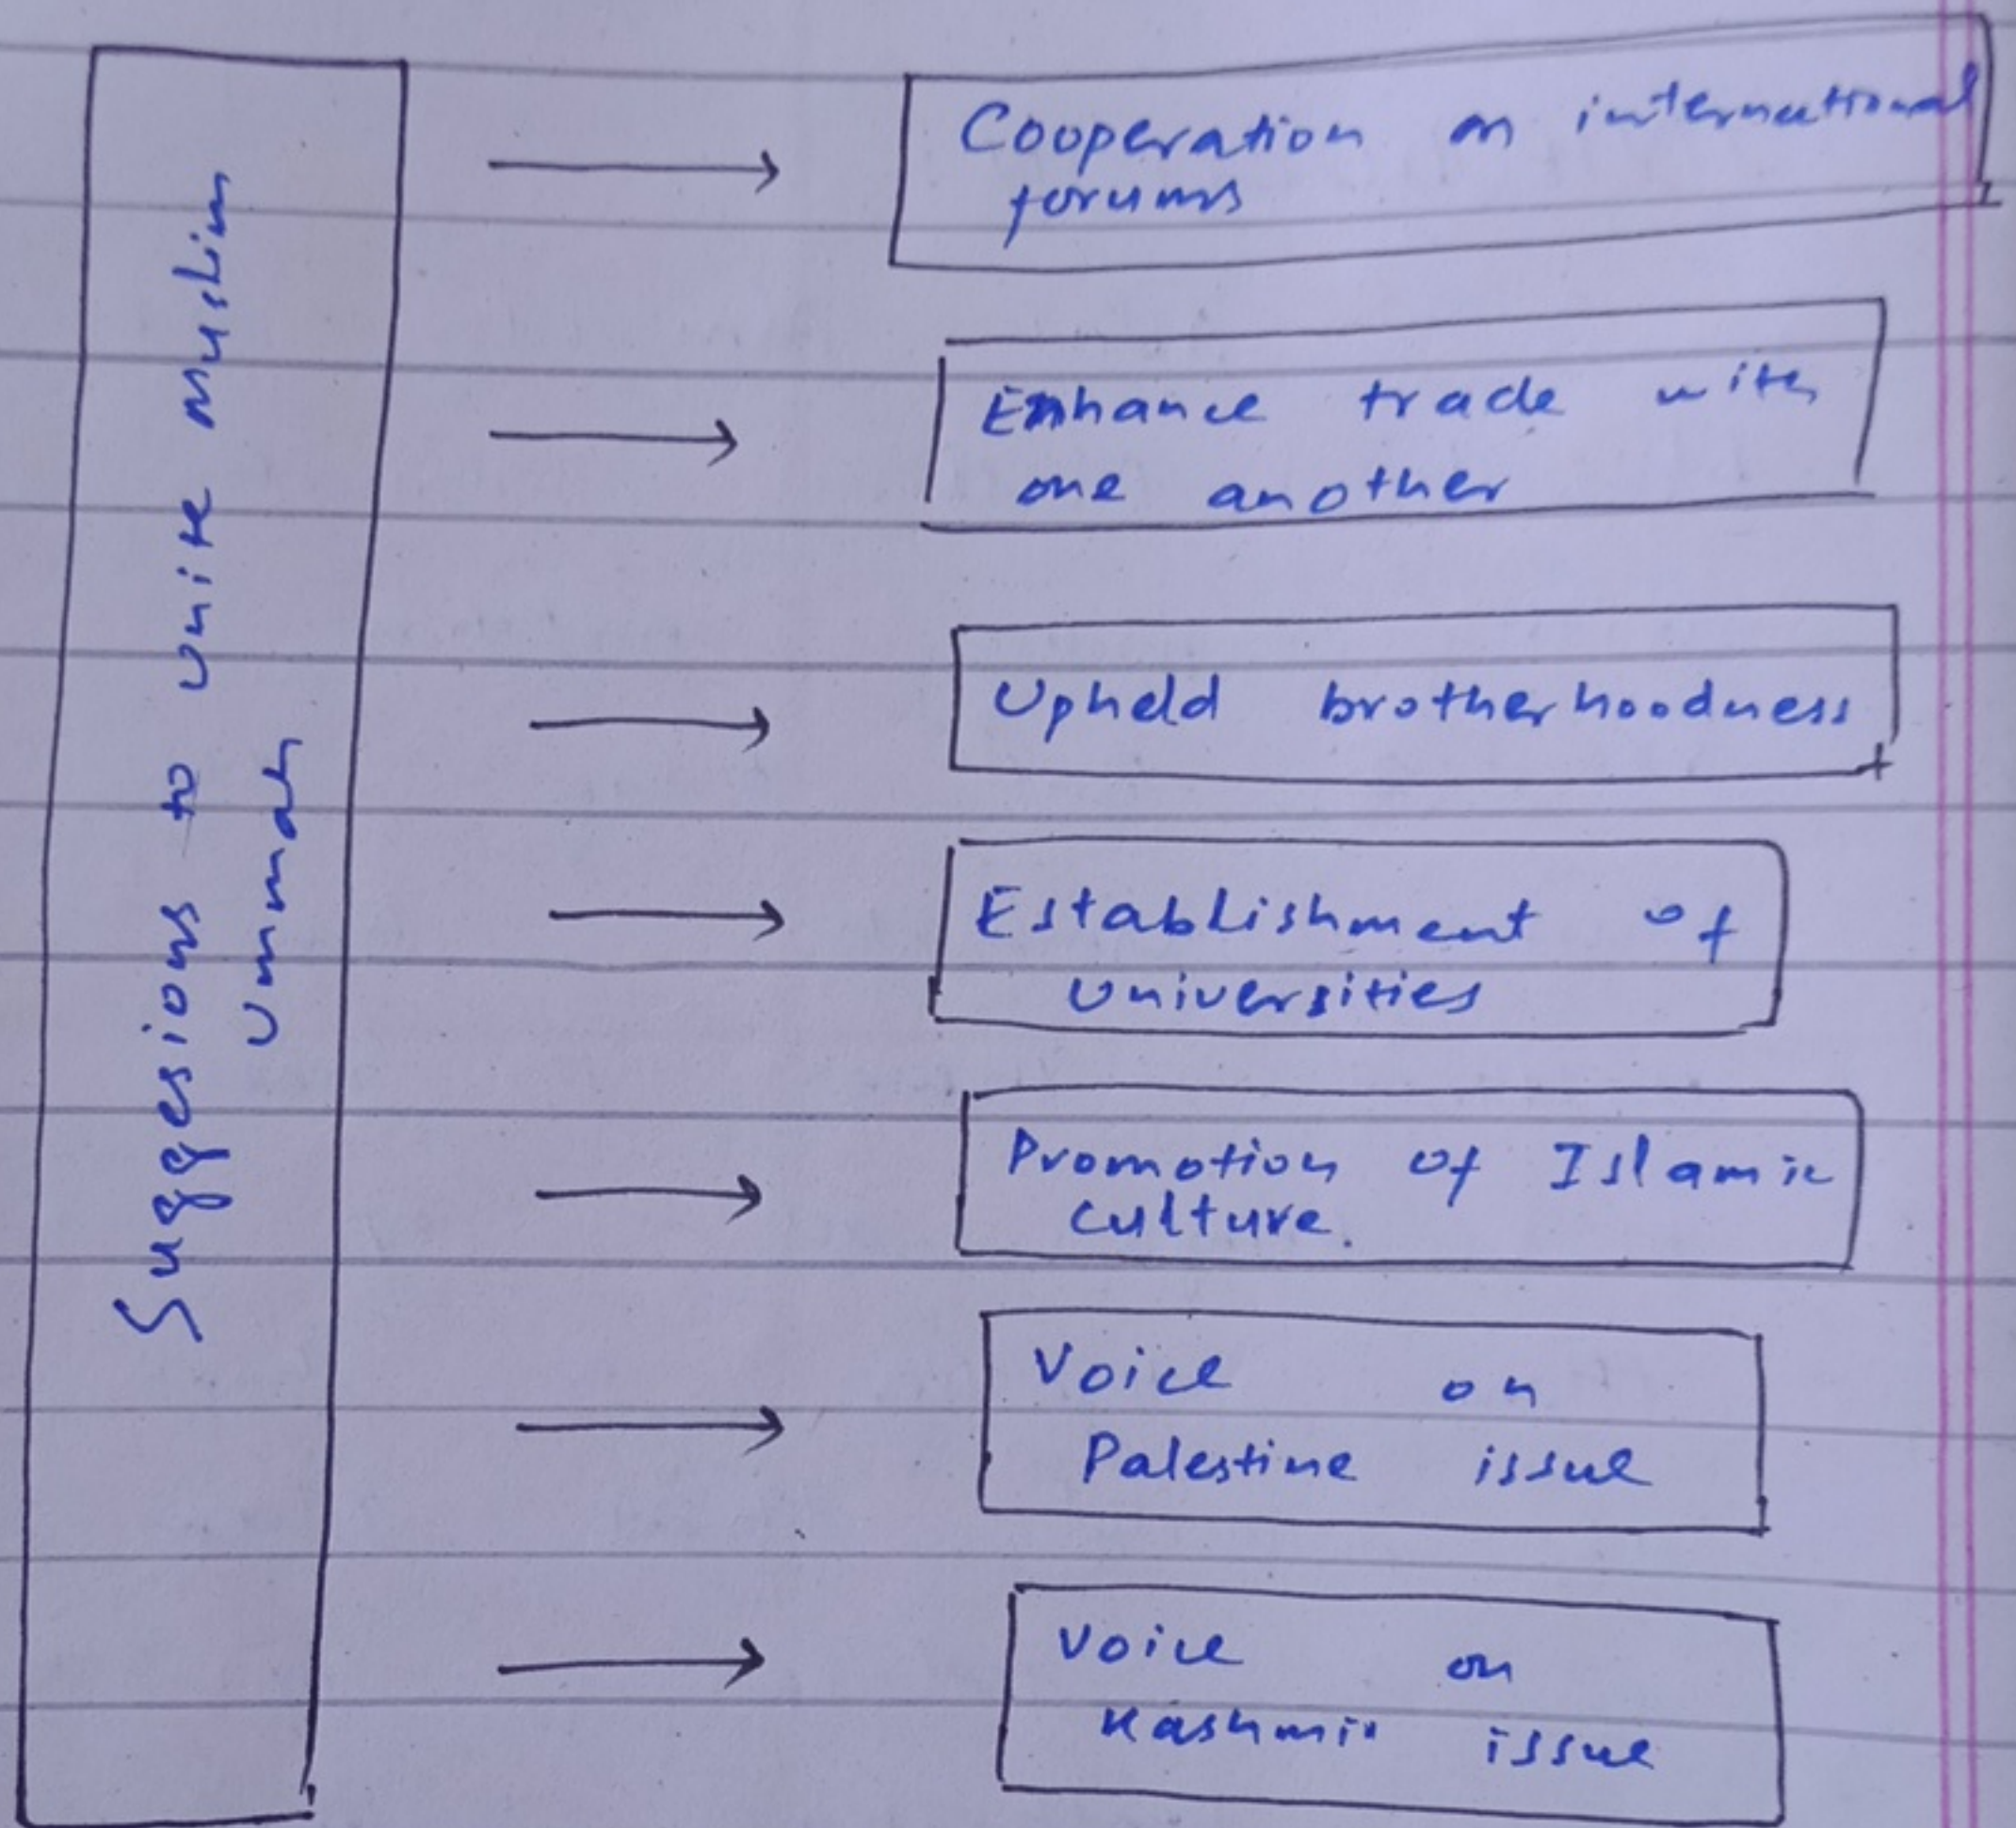 Suggesions to unite muslim
ummah
Cooperation on international
forums
Enhance trade with
one another
Upheld brotherhoodness
Establishment of
universities
Promotion of Islamic
culture.
Voice on
Palestine issue
Voice on
Kashmir issue